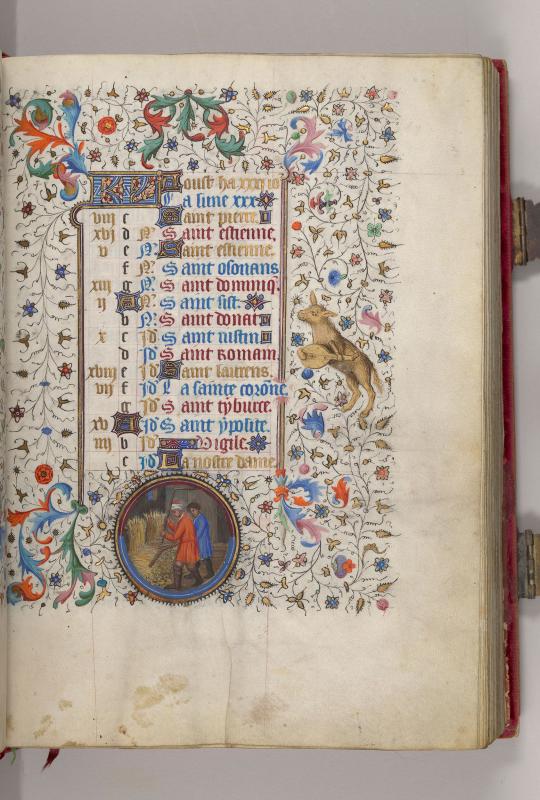 KL Aoust ha xxxi io
Et la lune xxx
viii c Saint pierre
xvi d N Saint estienne
v e N Saint estienne
f N Saint osouans
xiii g N Saint dominiq
ii A N Saint sist
b N Saint donat
x c Id Saint iustin
d Id Saint Romain
xviii e Id Saint laurens
vii f Id La sainte corone
g Id Saint tyburce
xv A Id Saint ypolite
iiii b Id Vigile
c Id La nostre dame